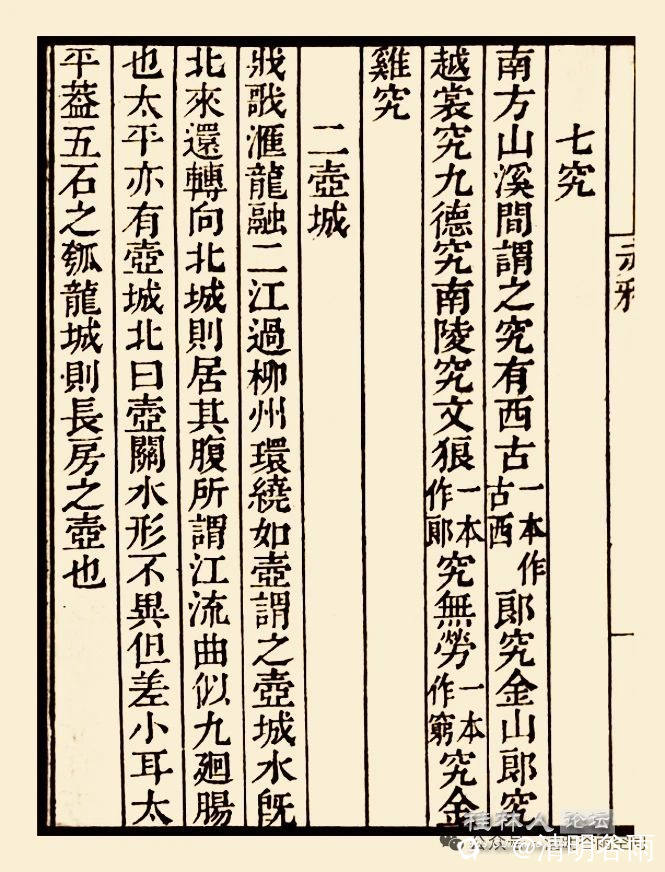 七究
南方山溪間謂之究有西古一本作古西郎究金山郎究
越裳究九德究南陵究文狼一本作郎究無勞一本作窮究金
雞究
二壺城
戕戨滙龍融二江過柳州環繞如壺謂之壺城水旣
北來還轉向北城則居其腹所謂江流曲似九廻腸
也太平亦有壺城北曰壺關水形不異但差小耳太
平葢五石之瓠龍城則長房之壺也
一
桂林人论坛
公众号
@清明谷雨